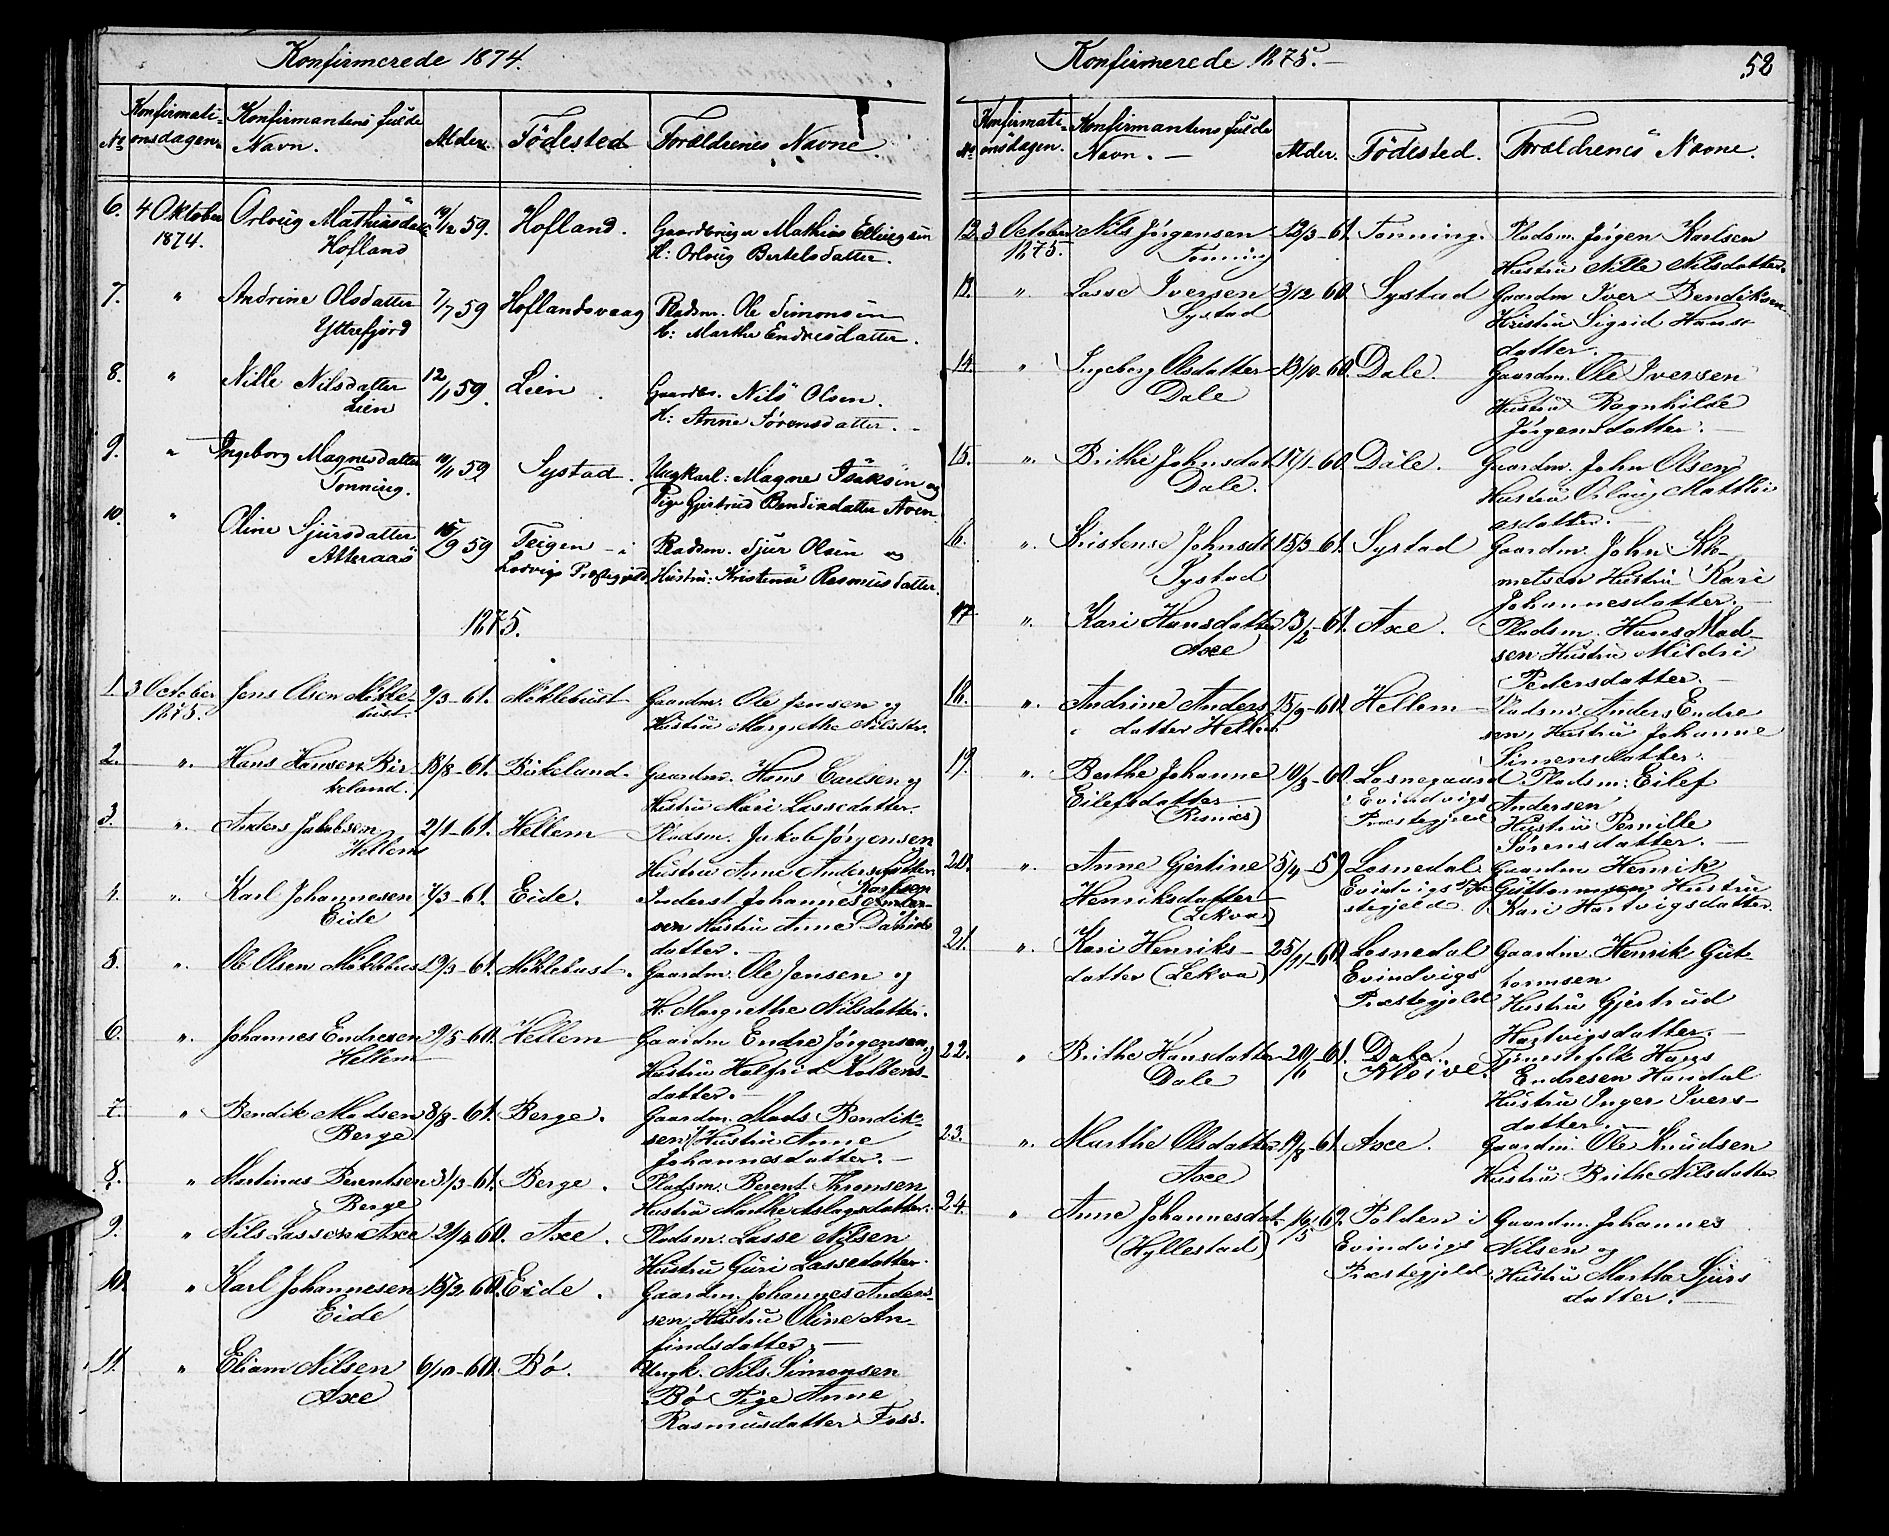 Konfirmerede 1874.
No Konfirmati-onsdagen. Konfirmantens fulde Navn. Alder. Födested Forældrenes Navne
6. 4 Oktober 1874. Orloug Mathiasdatt Hofland 59. Hofland. Gaardbruger Mathias Ellingsen
H: Orloug Bertelsdatter.
7. " Andrine Olsdatter Yttrefjord 7/7 59 Hoflandsvaag Pladsm. Ole Simonsen
H: Marthe Endresdatter.
8. " Nille Nilsdatter Lien 12/1 59. Lien. Gaardbr. Nils Olsen.
H: Anne Sørensdatter.
9. " Ingeborg Magnesdatter Tonning. 10/11 59 Systad. Ungkarl: Magne Isaksen og
Pige Gjertrud Bendixdatter Aven
10. " Oline Sjursdatter Atteraas 15/9 59 Teigen i Ladvigs Præstegjeld Pladsm. Sjur Olsen og
Hustru: Kristense Rasmusdatter.
1875.
1. 3 October 1875. Jens Olsen Mökle-bust. 9/3-61. Möklebust Gaardm. Ole Jensen og
Hustru Margrethe Nilsdtr.
2. " Hans Hansen Bir keland. 18/8-61. Birkeland. Gaardm. Hans Carlsen og
Hustru Mari Lassedatter.
3. " Anders Jakobsen Hellem 2/1-61. Hellem Pladsm. Jakob Jørgensen
Hustru Anne Andersdatter.
4. " Karl Johannesen Eide 7/3-61. Eide. Inderst Johannes Karlsen
Hustru Anne Davids
datter.
5. " Ole Olsen Möklebus 29/3-61. Möklebust. Gaardm. Ole Jensen og
H. Margrethe Nilsdatter.
6. " Johannes Endresen Hellem 9/5-60. Hellem Gaardm Endre Jørgensen og
Hustru Halfrid Kolbens-
datter.
7. " Bendik Madsen Berge 8/8-61. Berge. Gaardm. Mads Bendik-
sen, Hustru Anne
Johannesdatter.
8. " Martinus Berentsen Berge 31/3-61. Berge. Pladsm. Berent Thronsen
Hustru Marthe Aslagsdatter.
9. " Nils Lassen Axe 21/4 60. Axe. Pladsm. Lasse Nilsen
Hustru Guri Lassedatter.
10. " Karl Johannesen Eide 15/2 60. Eide. Gaardm. Johannes Anders-
sen, Hustru Oline An-
findsdatter.
11. " Eliam Nilsen Axe 6/10-60. Bö. Ungk. Nils Simonsen
Bö Pige Anne
Rasmusdatter Foss.
Konfirmerede 1875. 52
No Konfirmati-onsdagen. Konfirmantens fulde Navn. Alder. Födested. Forældrenes Navne.
12. 3 October 1875. Nils Jörgensen Tonning 12/3-61. Tonning. Pladsm. Jörgen Karlsen
Hustru Nille Nilsdatter.
13. " Lasse Iversen Systad 3/12-60. Systad Gaardm Iver Bendiksen
Hustru Sigrid Hans
datter.
14. " Ingeborg Olsdatter Dale 13/10-60. Dale. Gaardm. Ole Iversen
Hustru Ragnhilde
Jörgensdatter.
15. " Brithe Johnsdat Dale. 17/1-60. Dale. Gaardm. John Olsen
Hustru Orloug Matthi
asdatter.
16. " Kristense Johnsdt Systad 15/3-61. Systad Gaardm. John Kle-
metsen Hustru Kari
Johannesdatter.
17. " Kari Hansdatter Axe 13/2-61. Axe. Pladsm. Hans Mad-
sen Hustru Mildri
Pedersdatter.
18. " Andrine Anders datter Hellem 15/9-60. Hellem Pladsm. Anders Endre
sen, Hustru Johanne
Simensdatter.
19. " Berthe Johanne Eilefsdatter (Risnes) 10/3-60. Losnegaard Evindvigs Præstegjeld Pladsm. Eilef
Andersen
Hustru Pernille
Sørensdatter.
20. " Anne Gjertine Henriksdatter (Lekva) 5/4-59 Losnedal Evindvigs Præ-stegjeld. Gaardm Henrik
Guttormsen Hustru
Kari Hartvigsdatter.
21. " Kari Henriks-datter (Lekva) 25/11-60. Losnedal Evindvigs Præstegjeld Gaardm. Henrik Gut-
tormsen
Hustru Gjertrud
Hartvigsdatter.
22. " Brithe Hansdatter Dale 20/6-61. Dale Kleive. Tjenestefolk Hans
Endresen Hundal
Hustru Inger Ivers-
datter.
23. " Marthe Olsdatter Axe 19/8-61. Axe. Gaardm. Ole Knudsen
Hustru Brithe Nilsdatter
24. " Anne Johannesdat (Hyllestad) 16/5 Polden i Evindvigs Præstegjeld. Gaardm. Johannes
Nilsen og
Hustru Martha Sjurs
datter.